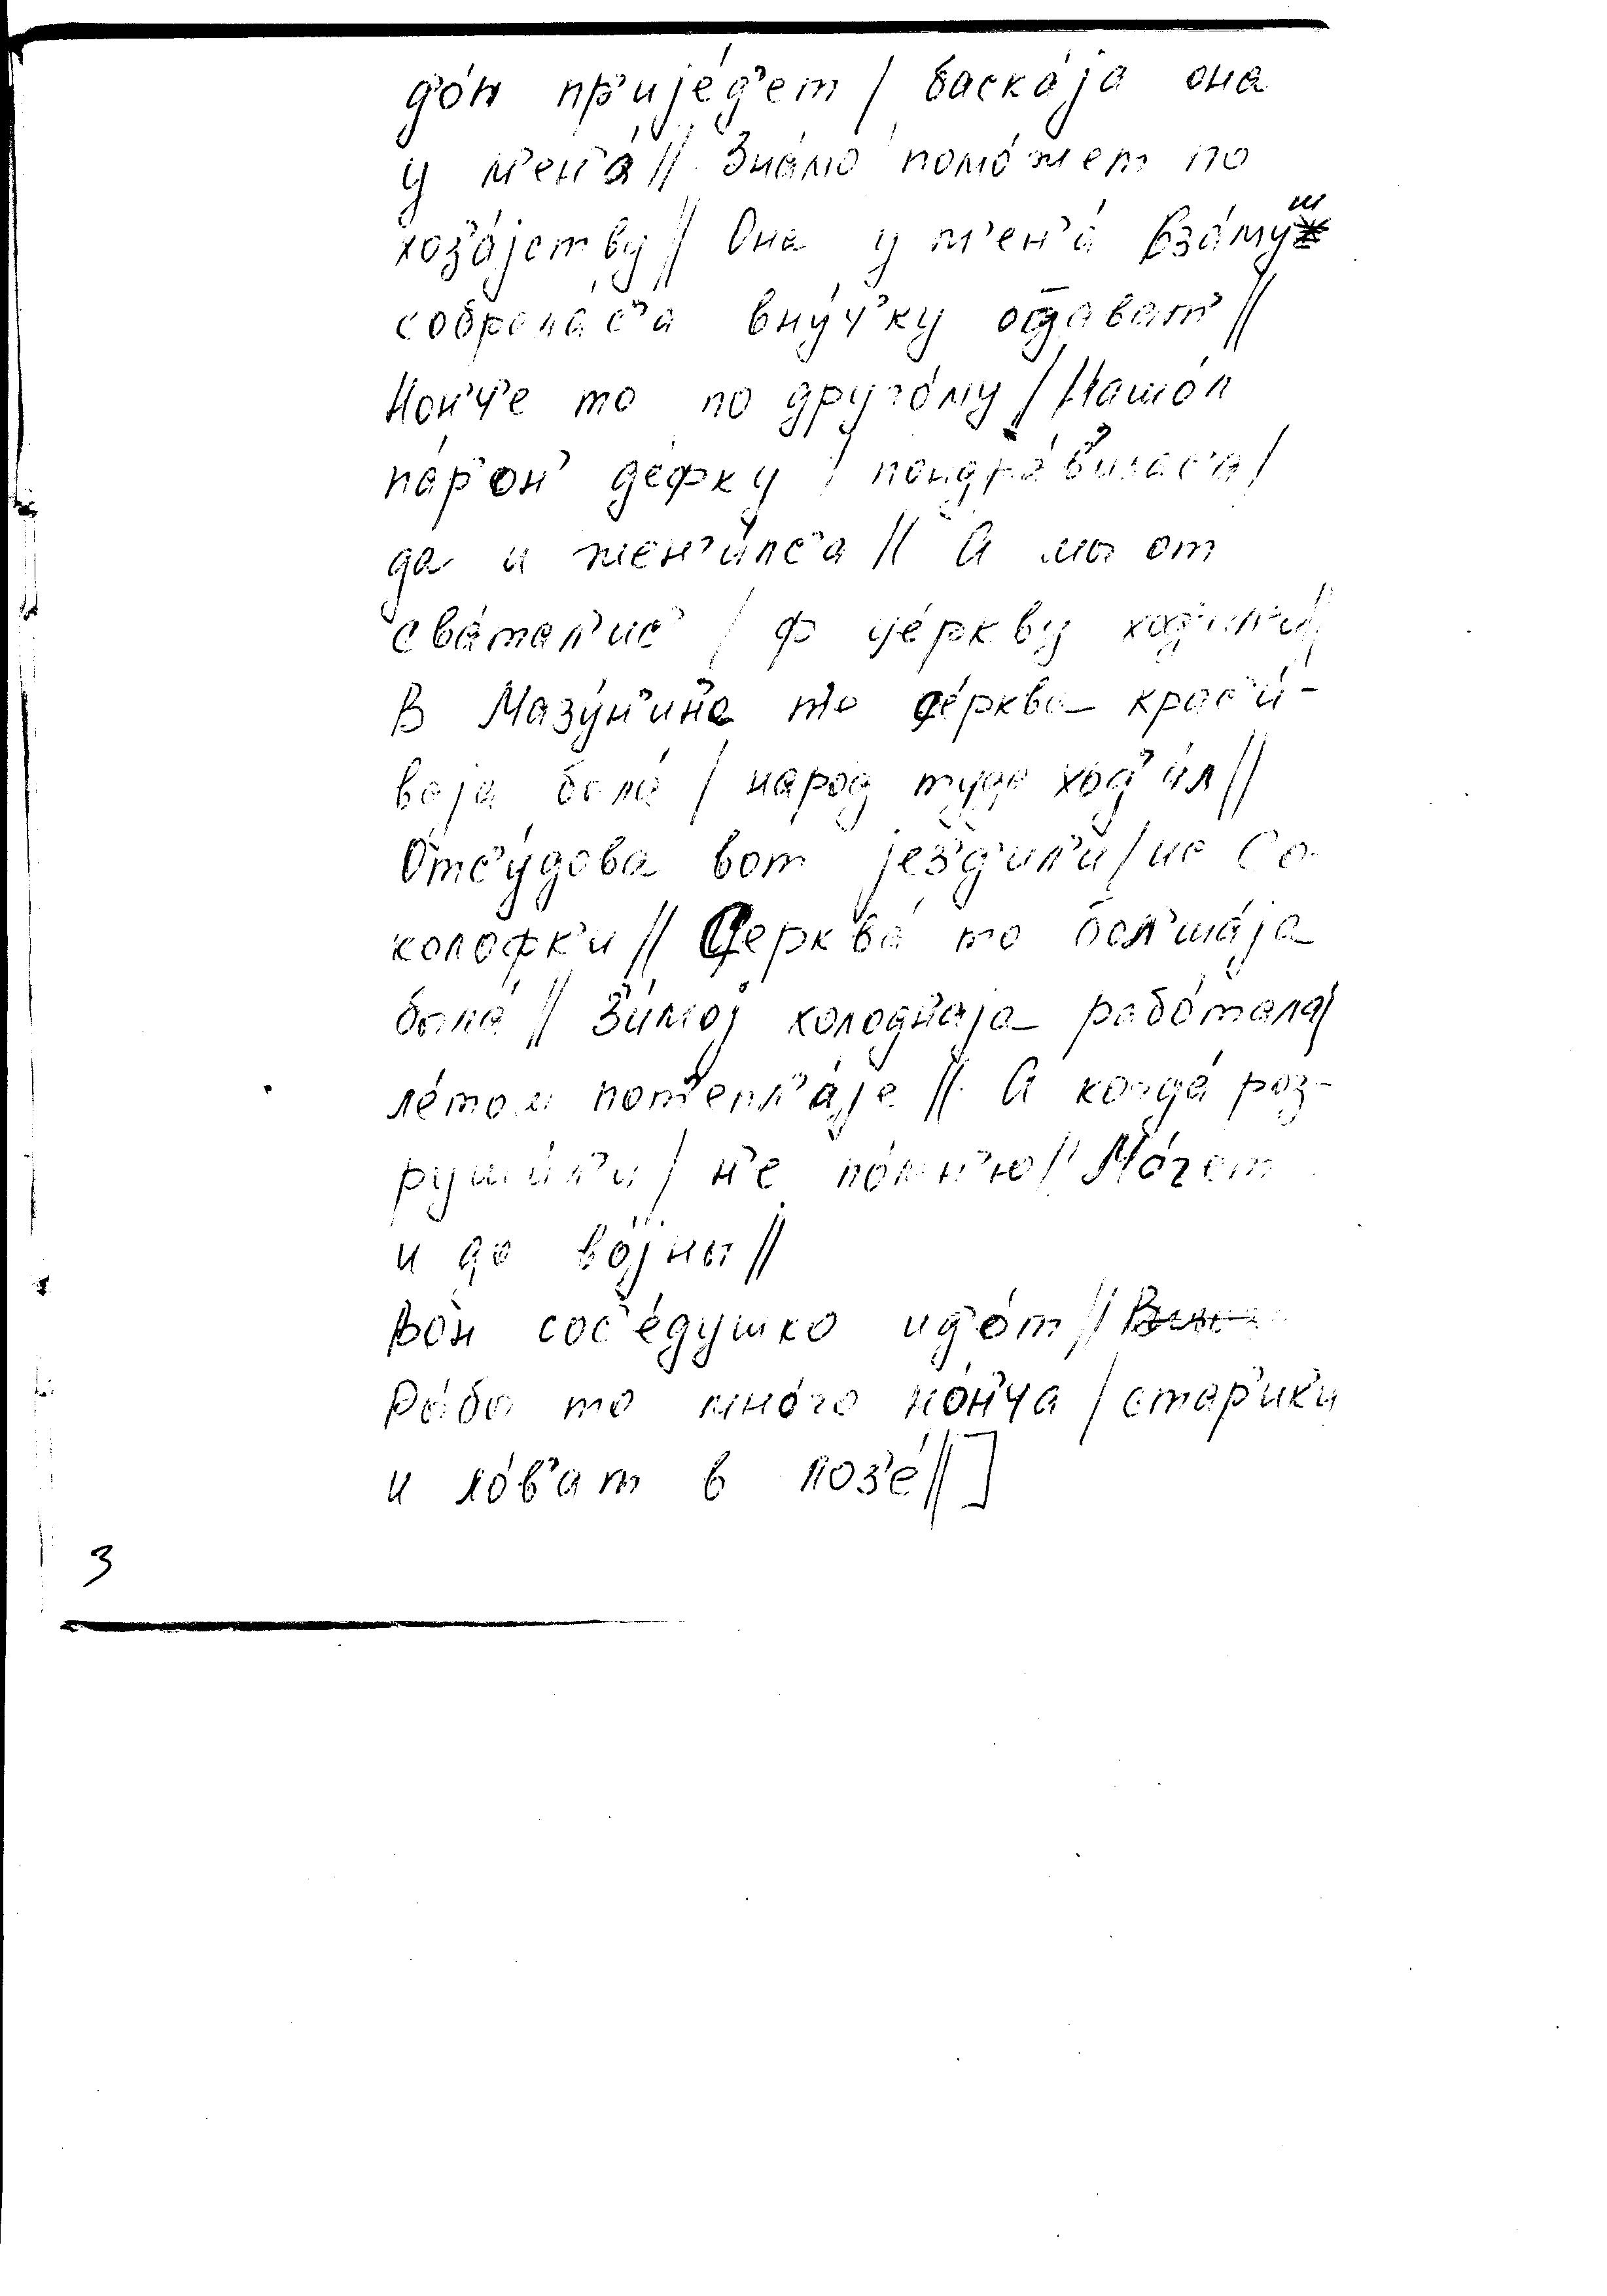 д'о́н пр'ијéд'ет / баскáја она
у м'ен'á // Знáмо помóжет по
хоз'áјству // Она у м'ен'á взáмуш
собралáс'а внýч'ку о̄давáт' //
Нон'ч'е то по другóму / Нашóл
пáр'он' дéфку / пондрáв'илас'а /
да и жен'и́лс'а // А мы от
свáтал'ис' / ф цéркву ход'ил'и //
В Мазýн'ин'е то цéрква крас'и́-
ваја была́ / народ туда ход'и́л //
Отс'ýдова вот јéз'д'ил'и / ис Со-
колофк'и // Церквá то бол'шáја
была́ // З'имој холоднаја рабóтала /
лéтом пот'епл'áје // А когдá роз-
руши́л'и / н'е пóмн'ю // Мóгет
и до војны //
Вон сос'éдушко ид'óт //
Ры́бы то мнóго нóн'ча / стар'ик'и
и лóв'ат в поз'é // ]
3